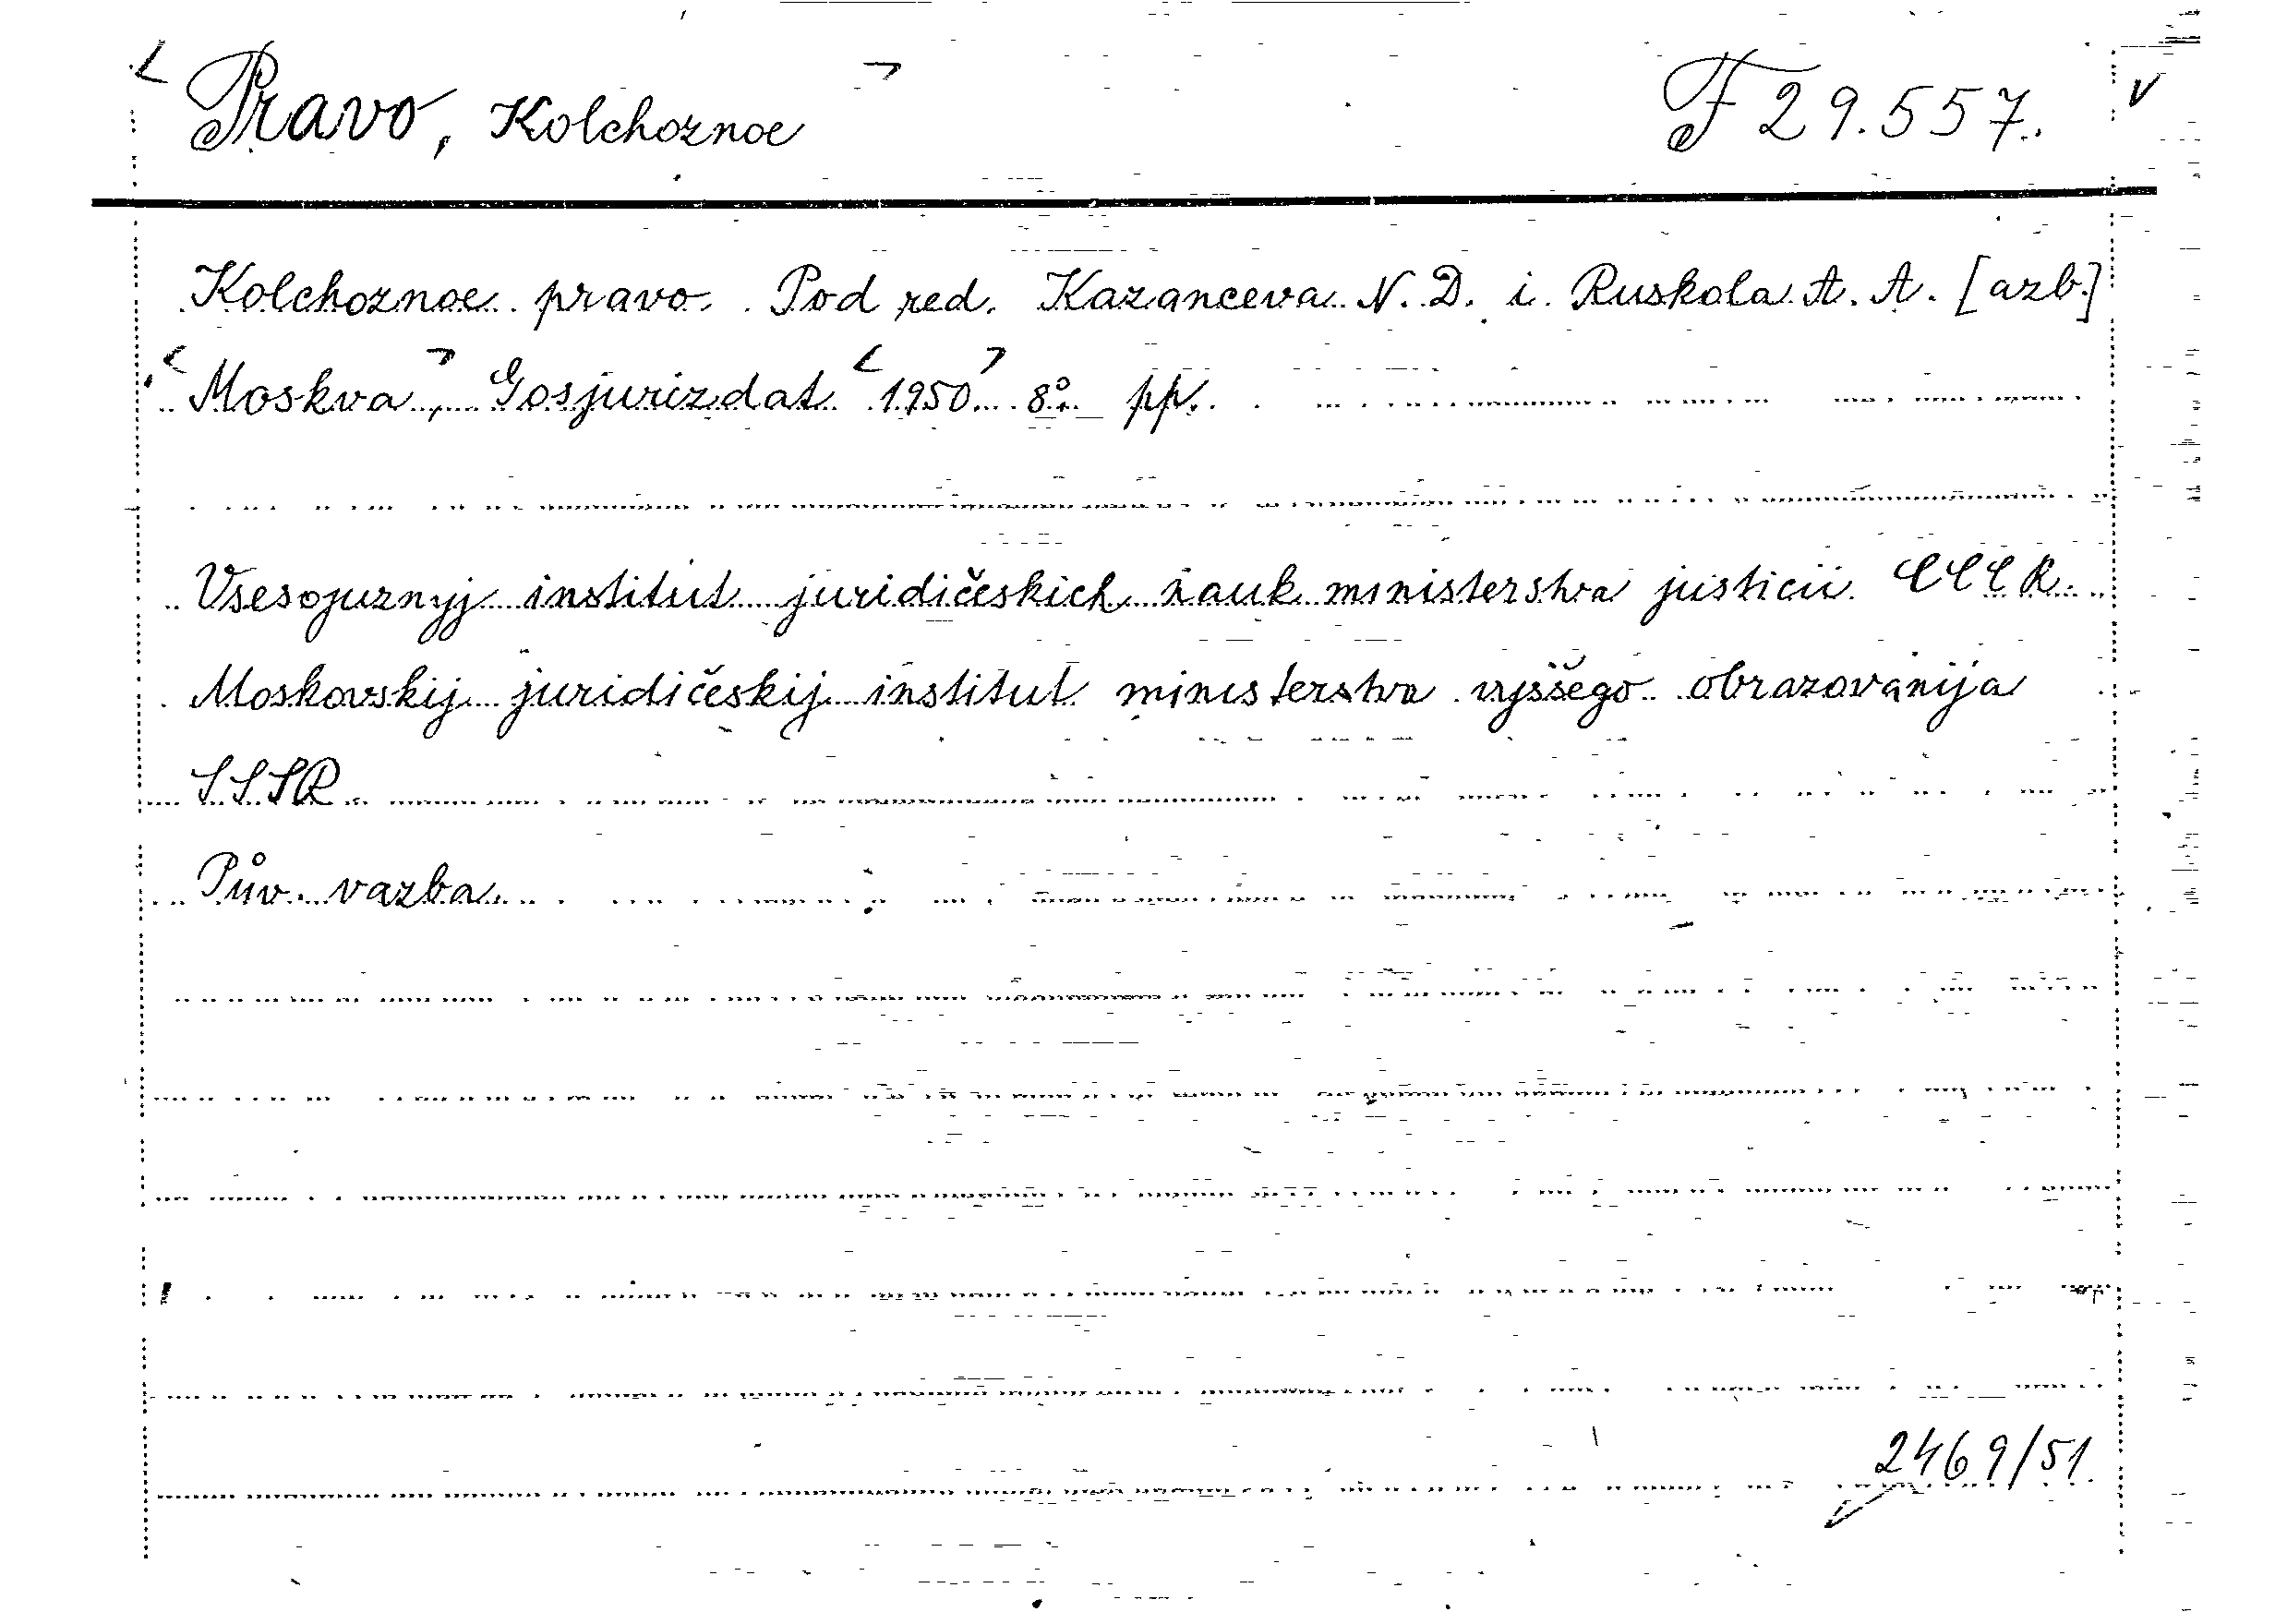 Pravo, Kolchoznoe F 29.557.
Kolchoznoe pravo. Pod red. Kazanceva N. D. i Ruskola A. A. [azb.]
Moskva, Gosjurizdat 1950. 8° pp.
Vsesojuznyj institut juridičeskich nauk ministerstva justicii SSSR.
Moskovskij juridičeskij institut ministerstva vysšego obrazovanija
SSSR.
Pův. vazba.
2469/51.